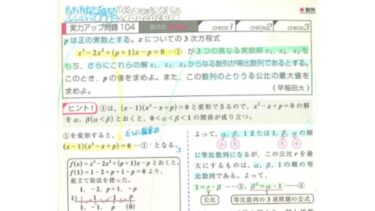 数列
実力アップ問題 104
CHECK1 CHECK2 CHECK3
pは正の実数とする。xについての3次方程式
x³−2x²+(p+1)x−p=0 …① が3つの異なる実数解 x₁, x₂, x₃ を
もち, さらにこれらの解 x₁, x₂, x₃ からなる数列が等比数列であるとする。
このとき, pの値を求めよ。また, この数列のとりうる公比の最大値を
求めよ。
(早稲田大)
ヒント! ①は, (x−1)(x²−x+p)=0 と変形できるので, x²−x+p=0 の解
を α, β(α<β) とおくと, 0<α<β<1 の関係が成り立つ。
①を変形すると,
(x−1)(x²−x+p)=0 …①´ となる。
f(x)=x³−2x²+(p+1)x−p とおくと,
f(1)=1−2+p+1−p=0 より,
組立て除法を使った。
1, −2, p+1, −p
よって, α, β, 1 または 1, β, α の順
に等比数列になるが, この公比 r を最
大にするものは, α, β, 1 の順の等
比数列である。よって,
1=r·β …③, β²=α·1 …④
公比
等比数列の3項問題の公式